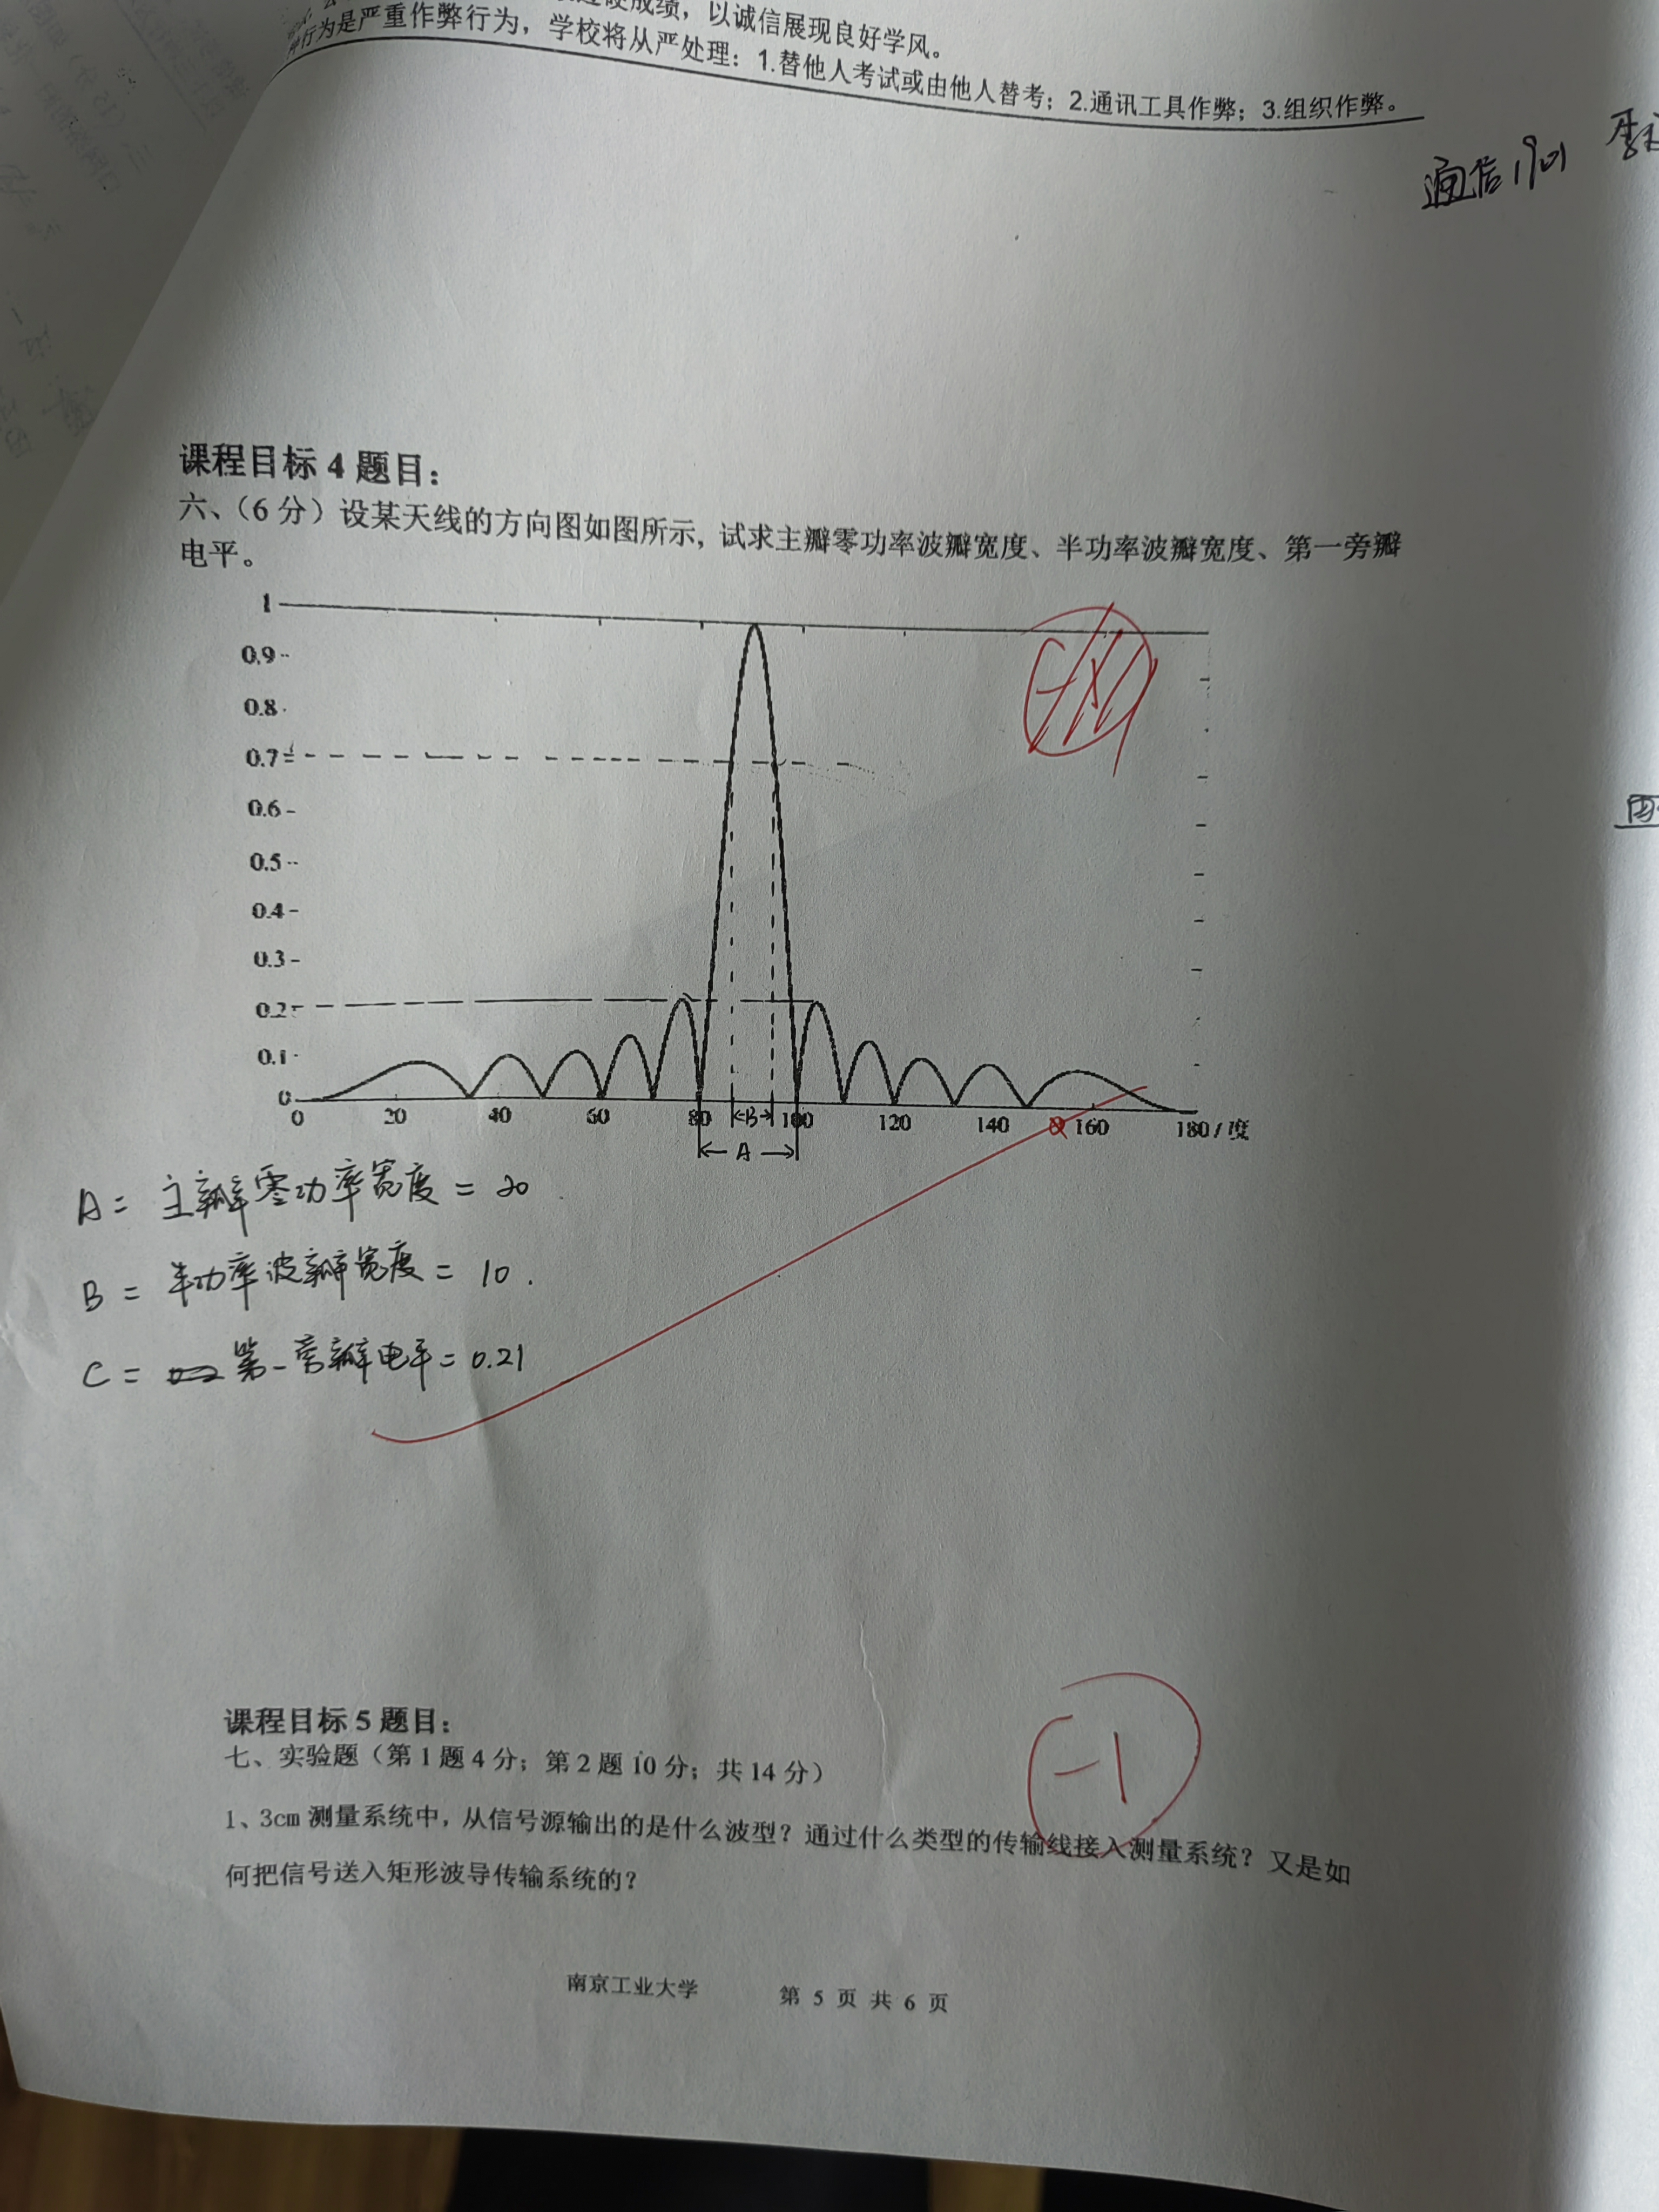 成绩，以诚信展现良好学风。
行为是严重作弊行为，学校将从严处理：1.替他人考试或由他人替考；2.通讯工具作弊；3.组织作弊。
通信1901
课程目标 4 题目：
六、（6 分）设某天线的方向图如图所示，试求主瓣零功率波瓣宽度、半功率波瓣宽度、第一旁瓣
电平。
1
0.9
0.8
0.7
0.6
0.5
0.4
0.3
0.2
0.1
0
0 20 40 60 80 B 100 120 140 160 180 / 度
A
A = 主瓣零功率宽度 = 20
B = 半功率波瓣宽度 = 10.
C = 第一旁瓣电平 = 0.21
课程目标 5 题目：
-1
七、实验题（第 1 题 4 分；第 2 题 10 分；共 14 分）
1、3cm 测量系统中，从信号源输出的是什么波型？通过什么类型的传输线接入测量系统？又是如
何把信号送入矩形波导传输系统的？
南京工业大学 第 5 页 共 6 页